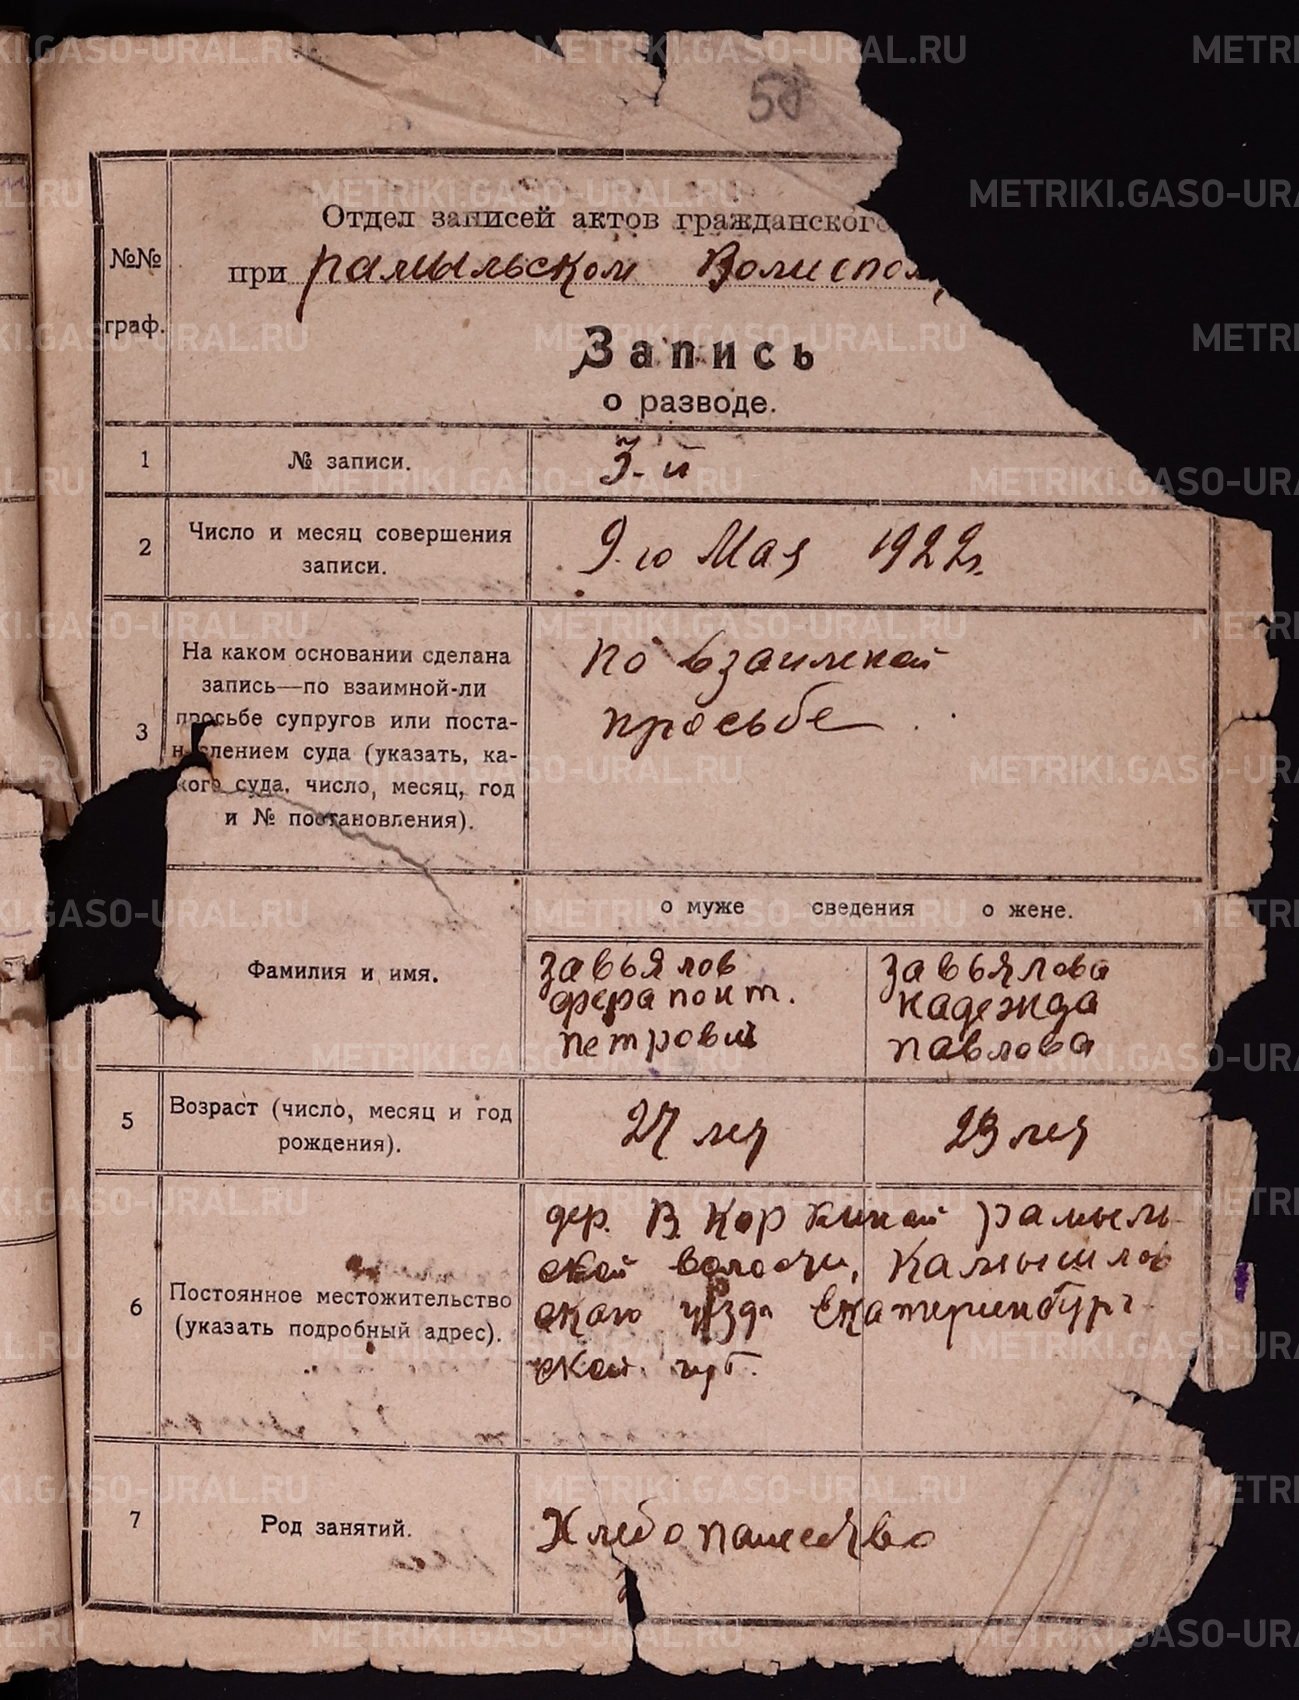 58
Отдел записей актов гражданского
при рамыльском Волиспол
№№ граф.
Запись
о разводе.
1 № записи. 3-й
2 Число и месяц совершения записи. 9-го Мая 1922г.
3 На каком основании сделана
запись—по взаимной-ли
просьбе супругов или поста-
новлением суда (указать, ка-
кого суда, число, месяц, год
и № постановления).
по взаимной
просьбе
о муже сведения о жене.
Фамилия и имя.
завьялов
ферапонт.
петрович
завьялова
надежда
павлова
5 Возраст (число, месяц и год
рождения).
27 лет
23 лет
6 Постоянное местожительство
(указать подробный адрес).
дер. В. Коркиной рамыль-
ской волости, Камышлов
ского уезда Екатеринбург-
ской губ.
7 Род занятий.
Хлебопашество
METRIKI.GASO-URAL.RU